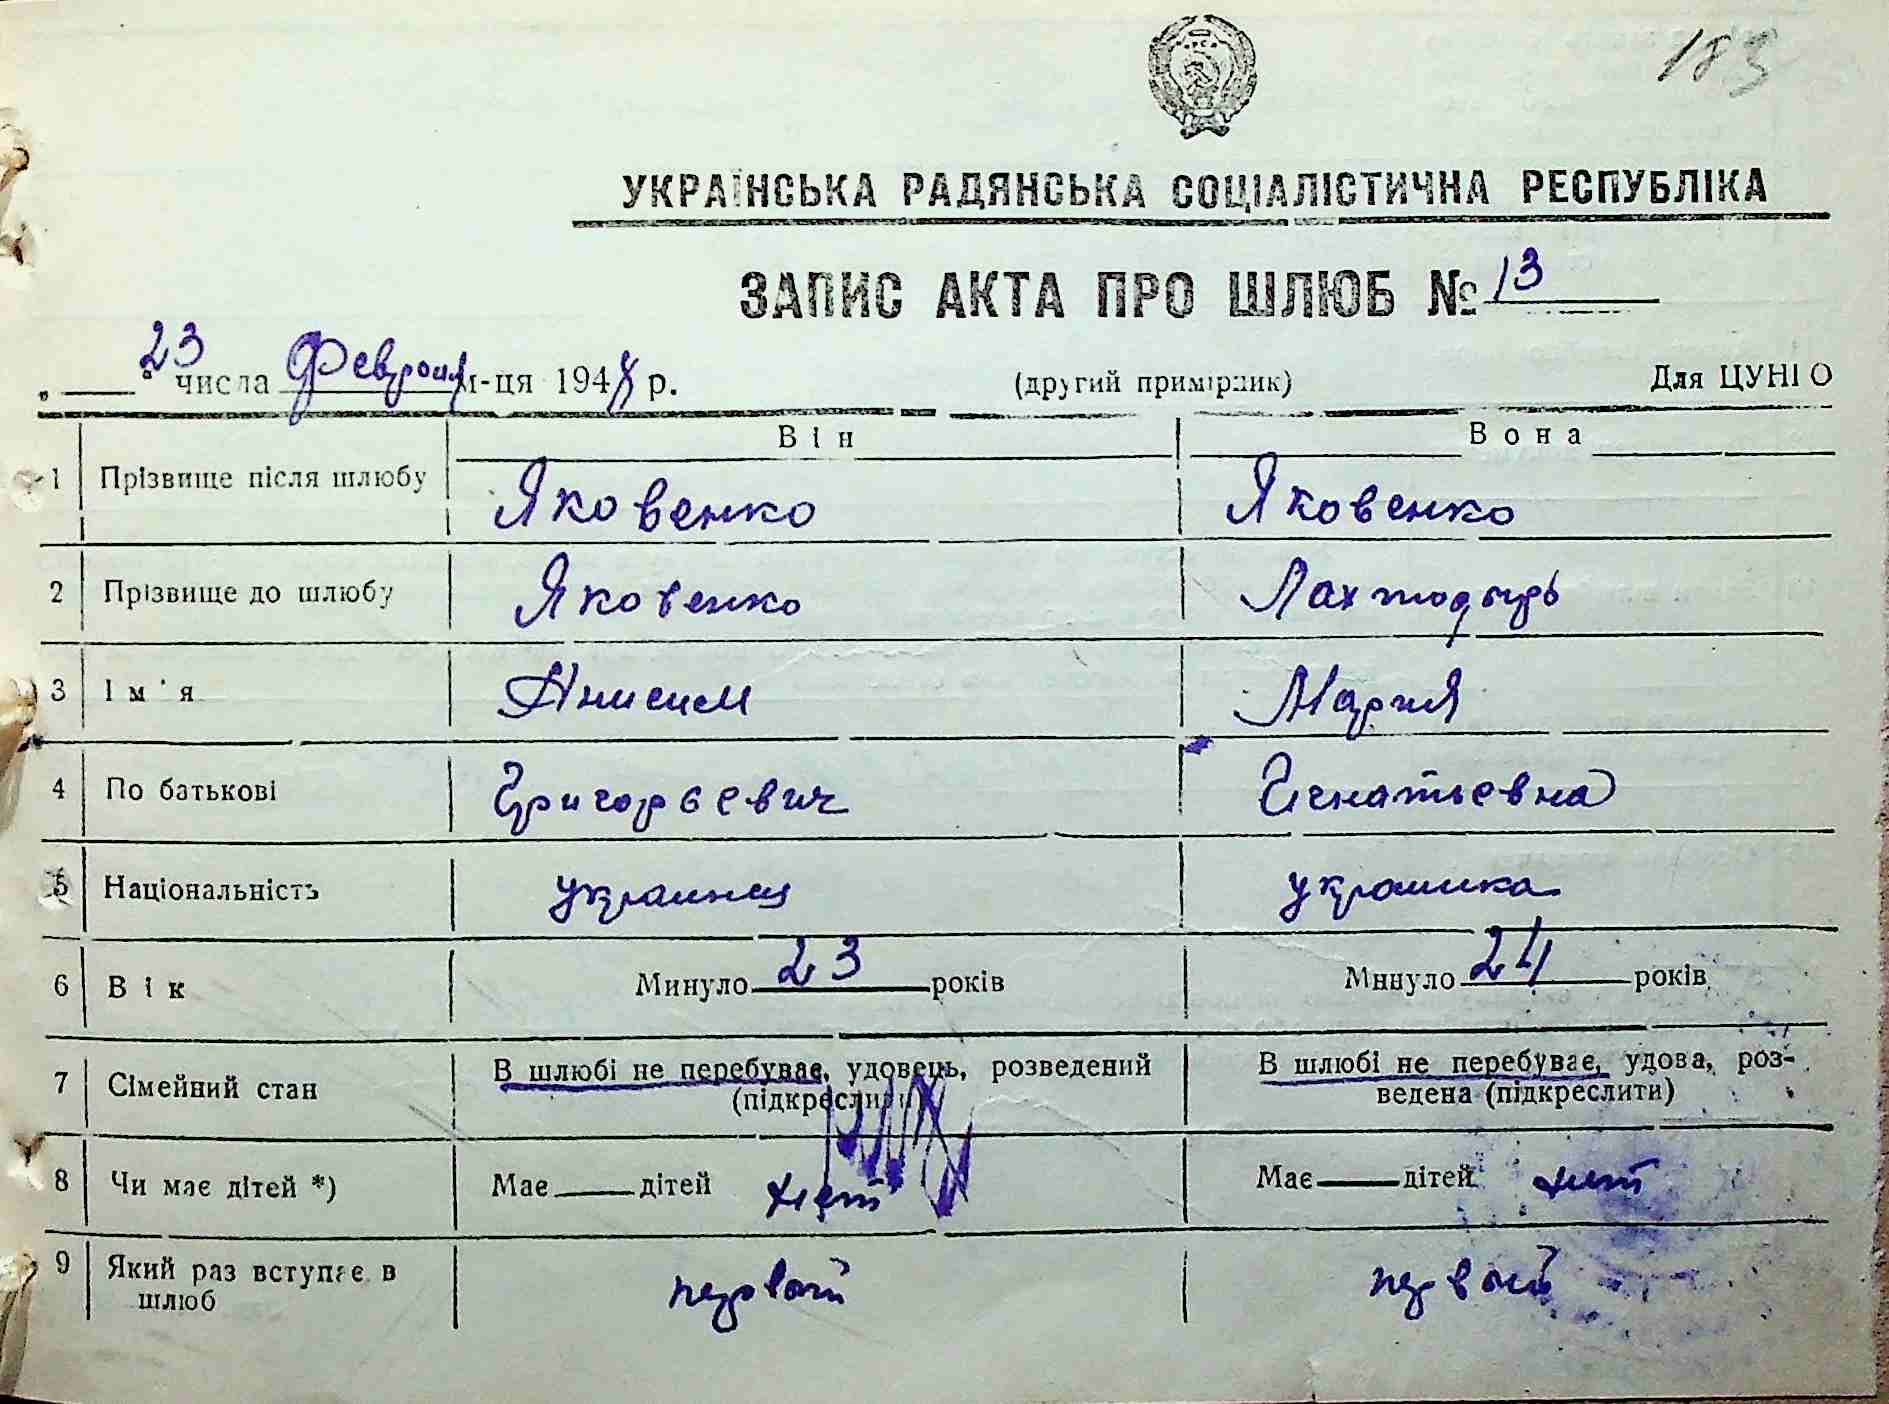 183
УКРАЇНСЬКА РАДЯНСЬКА СОЦІАЛІСТИЧНА РЕСПУБЛІКА
ЗАПИС АКТА ПРО ШЛЮБ № 13
„ 23 “ числа Февраля м-ця 1948 р. (другий примірник) Для ЦУНІО
Він Вона
1 Прізвище після шлюбу Яковенко Яковенко
2 Прізвище до шлюбу Яковенко
3 Ім'я Анисим Мария
4 По батькові Григорьевич Игнатьевна
5 Національність украинец украинка
6 Вік Минуло 23 років Минуло 24 років
7 Сімейний стан В шлюбі не перебуває, удовець, розведений В шлюбі не перебуває, удова, роз-
(підкреслити) ведена (підкреслити)
8 Чи має дітей *) Має — дітей нет Має — дітей нет
9 Який раз вступає в первый первый
шлюб